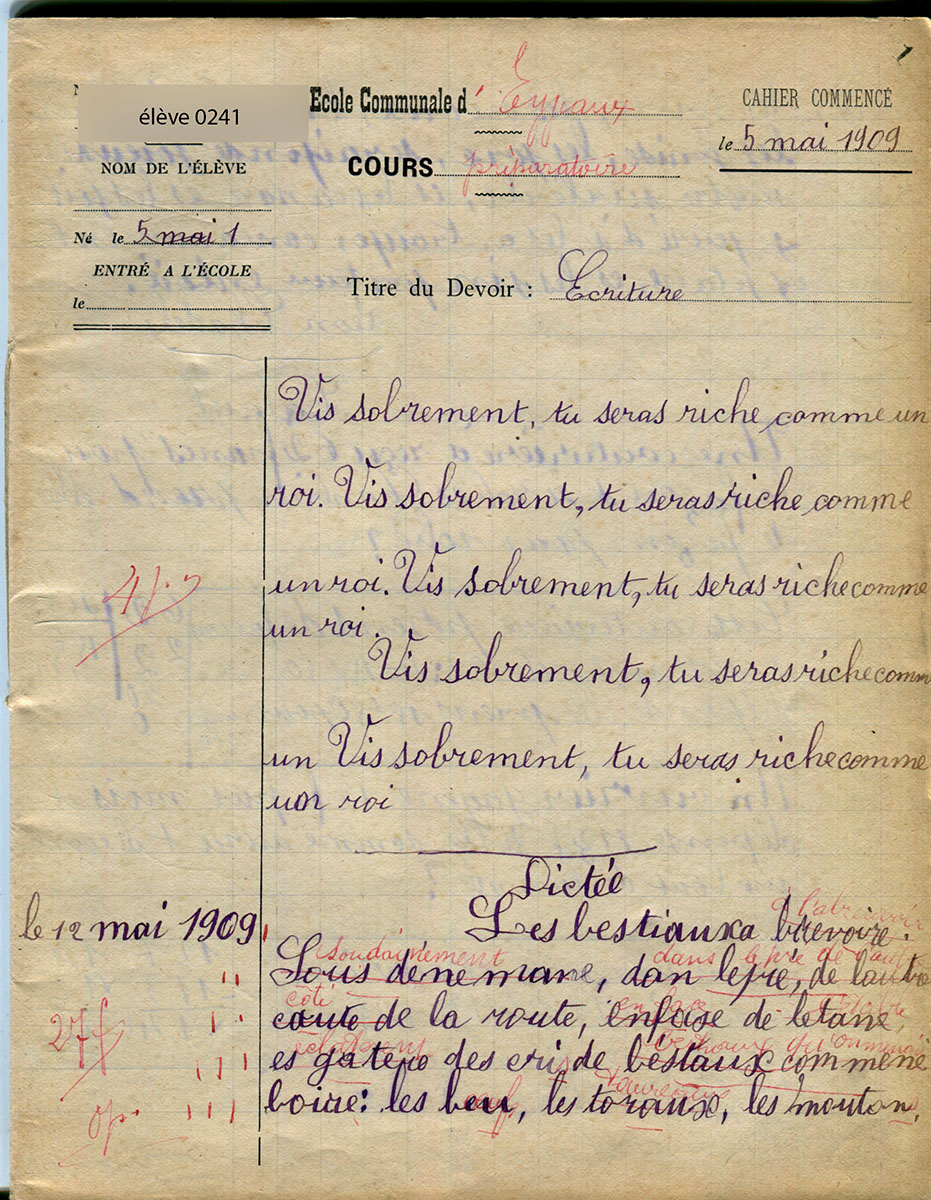 élève 0241
NOM DE L'ÉLÈVE
Né le 5 mai 1
ENTRÉ A L'ÉCOLE
le
Ecole Communale d' Eyjeaux
COURS préparatoire
CAHIER COMMENCÉ
le 5 mai 1909
Titre du Devoir : Ecriture
Vis sobrement, tu seras riche comme un
roi. Vis sobrement, tu seras riche comme
un roi. Vis sobrement, tu seras riche comme
un roi.
Vis sobrement, tu seras riche comm
un Vis sobrement, tu seras riche comme
un roi
Dictée
le 12 mai 1909
à l'abreuvoir
Les bestiaux a brevoire.
soudainement dans le pré de l'autre
Sous dène mane, dan lepré, de lautre
côté en face
caute de la route, enfase de letane,
éclatèrent bestiaux qu'on menait
es gatère des cri de bestaux commene
taureaux
boire: les beu, les toraux, les mouton,
27f